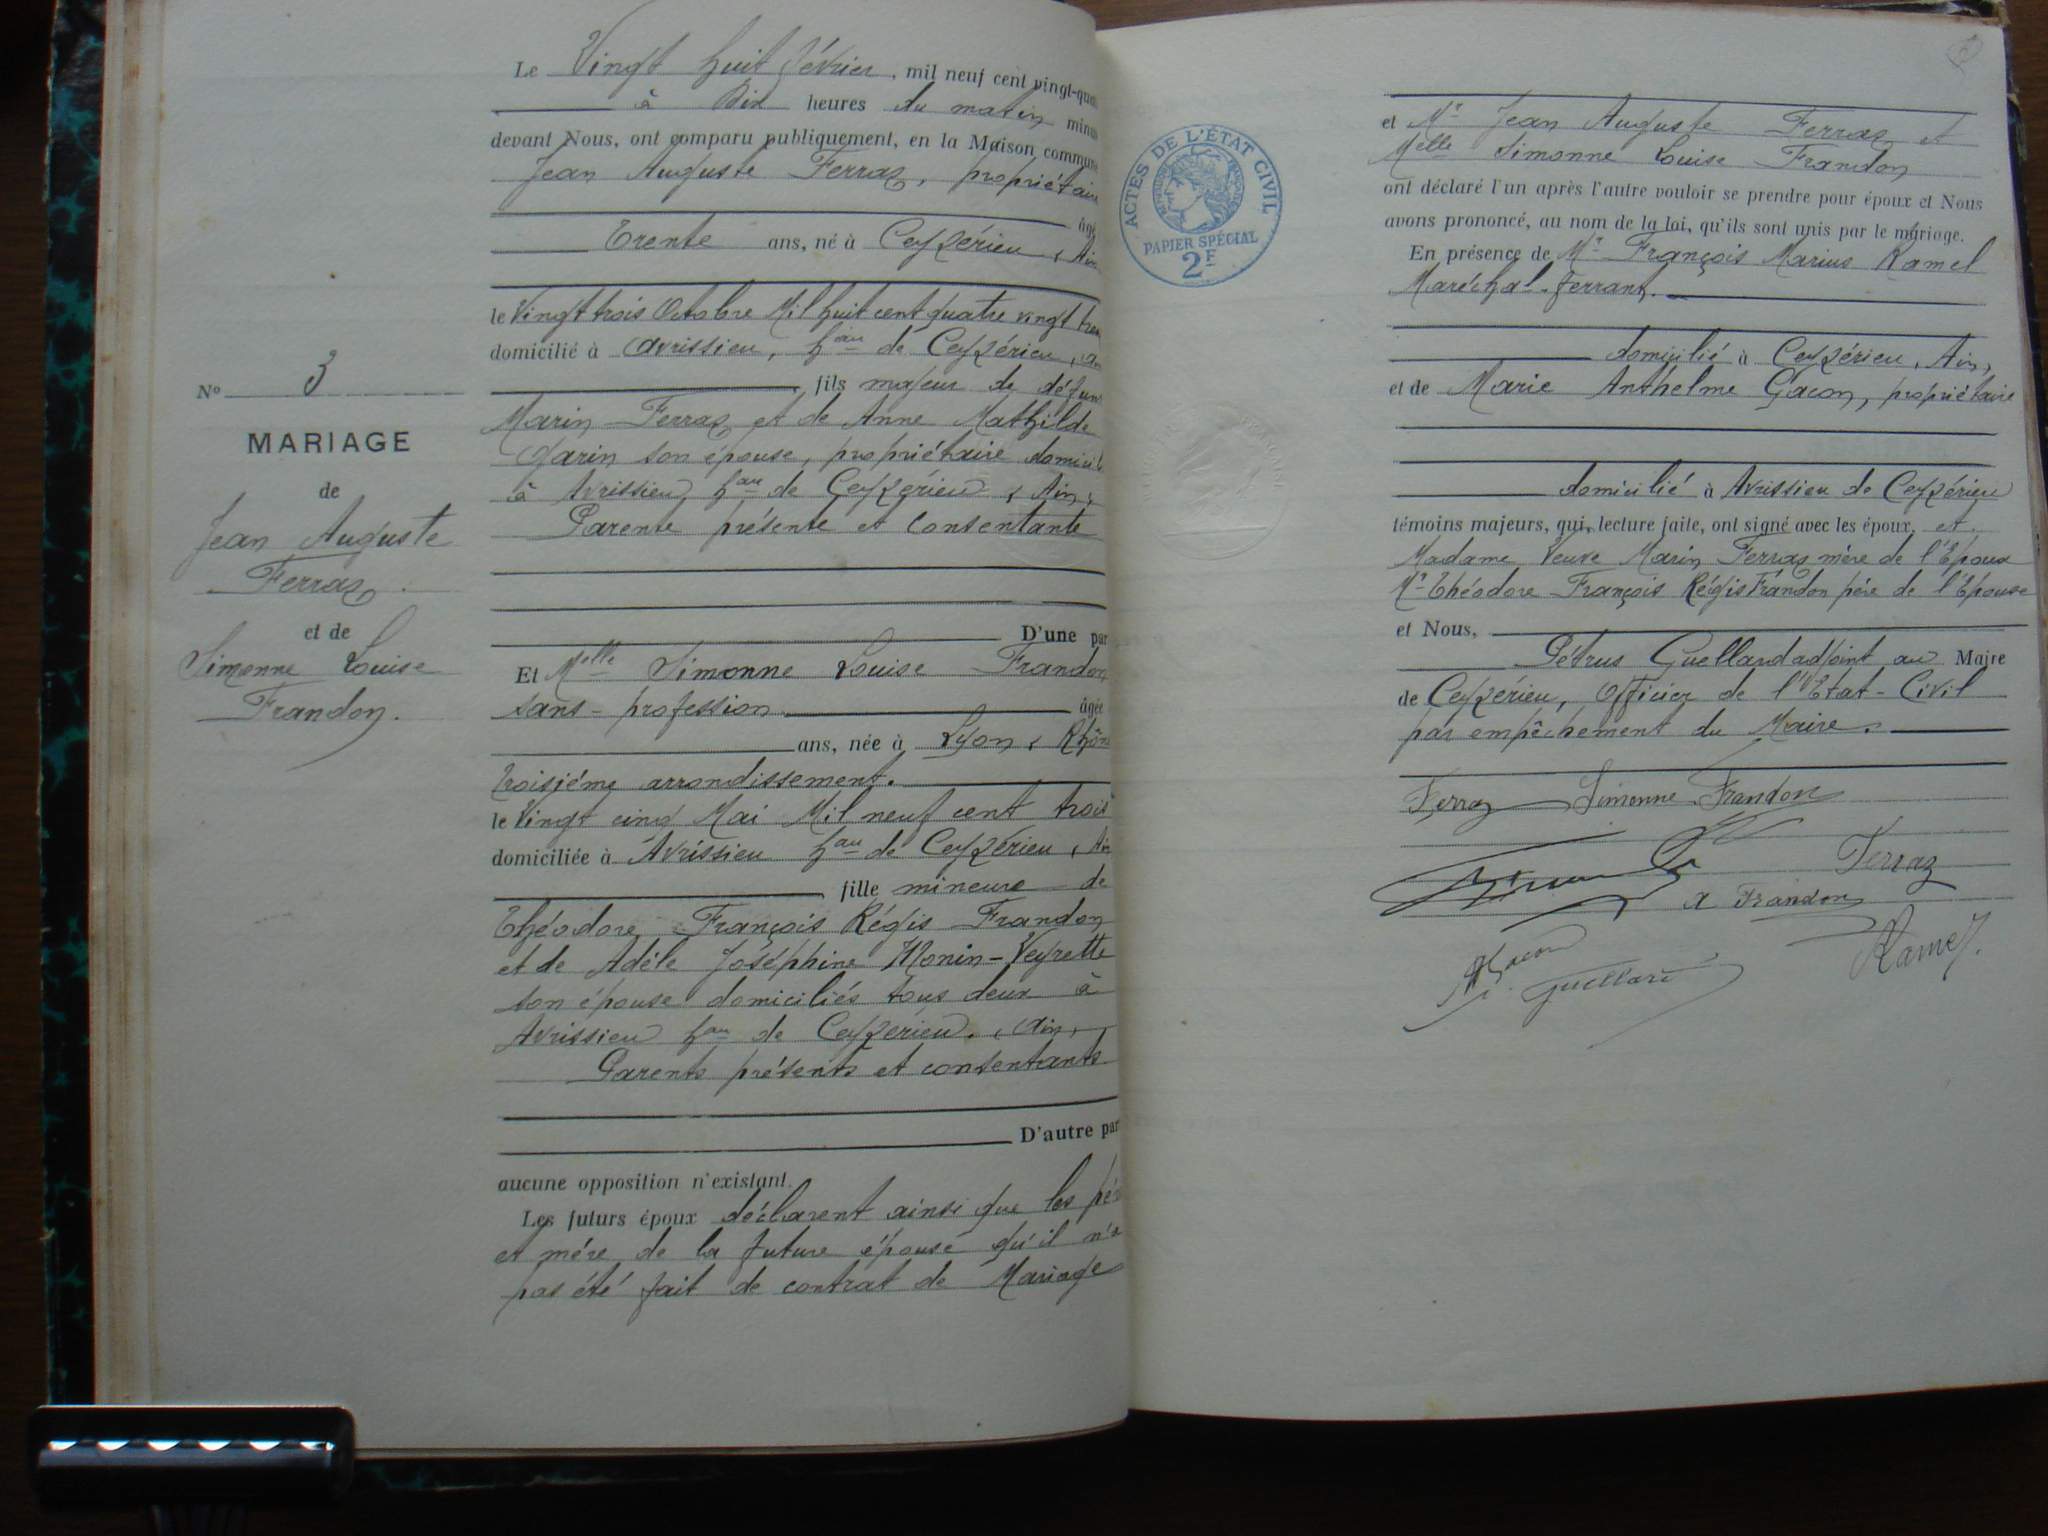 Nº 3
MARIAGE
de
Jean Auguste
Ferraz
et de
Simonne Louise
Frandon.
Le Vingt huit Février, mil neuf cent vingt-qua
à Dix heures du matin minu
devant Nous, ont comparu publiquement, en la Maison commune
Jean Auguste Ferraz, propriétaire
âgé
Trente ans, né à Ceyzérieu, Ain
le Vingt trois Octobre Mil huit cent quatre vingt trei
domicilié à Avrissieu, hau de Ceyzérieu,
fils majeur de défun
Marin Ferraz et de Anne Mathilde
son épouse, propriétaire domicili
à Avrissieu, hau de Ceyzérieu, Ain,
Parente présente et consentante
D'une par
Et Melle Simonne Louise Frandon
sans-profession. âgée
ans, née à Lyon, Rhône
troisième arrondissement.
le Vingt cinq Mai Mil neuf cent trois
domiciliée à Avrissieu hau de Ceyzérieu, Ain
fille mineure de
Théodore François Régis Frandon
et de Adèle Joséphine Monin-Veyrette
son épouse domiciliés tous deux à
Avrissieu hau de Ceyzerieu, Ain,
Parents présents et consentants
D'autre par
aucune opposition n'existant.
Les futurs époux déclarent ainsi que les pèr
et mère de la future épouse qu'il n'a
pas été fait de contrat de Mariage
ACTES DE L'ÉTAT CIVIL
PAPIER SPÉCIAL
2F
et Mr Jean Auguste Ferraz et
Melle Simonne Louise Frandon
ont déclaré l'un après l'autre vouloir se prendre pour époux et Nous
avons prononcé, au nom de la loi, qu'ils sont unis par le mariage.
En présence de Mr François Marius Ramel
Maréchal-ferrant.
domicilié à Ceyzérieu, Ain,
et de Marie Anthelme Gacon, propriétaire
domicilié à Avrissieu de Ceyzérieu
témoins majeurs, qui, lecture faite, ont signé avec les époux, et
Madame Veuve Marin Ferraz mère de l'Epoux
Mr Théodore François Régis Frandon père de l'Epouse
et Nous,
Pétrus Guelland adjoint au Maire
de Ceyzérieu, Officier de l'Etat-Civil
par empêchement du Maire.
Ferraz Simonne Frandon
Ferraz
A Frandon
Gacon
Ramel
Guelland